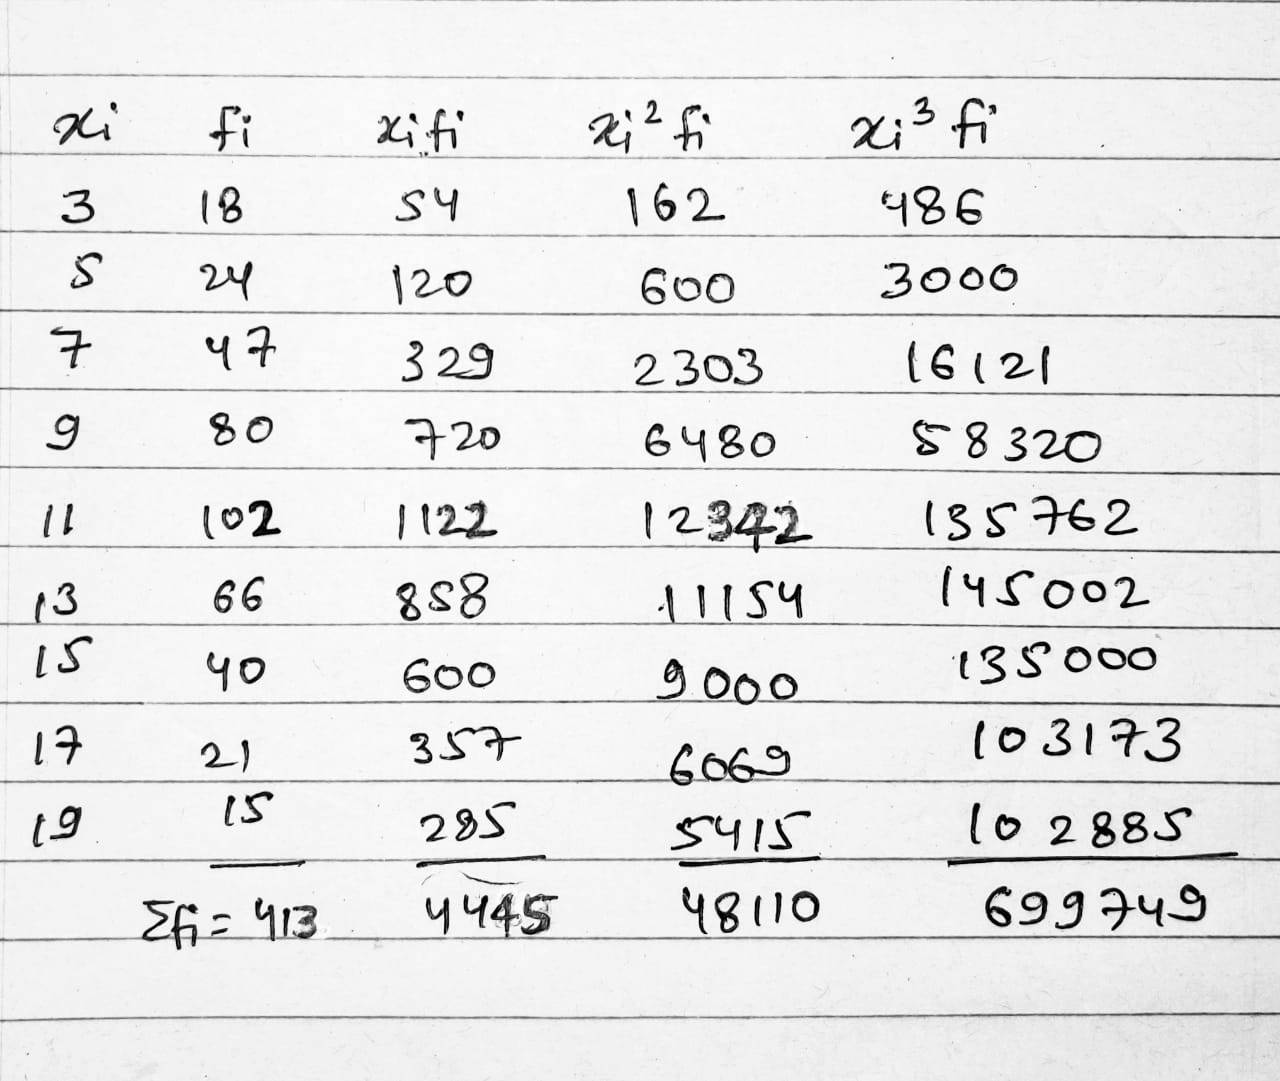 xi fi xifi xi² fi xi³ fi
3 18 54 162 486
5 24 120 600 3000
7 47 329 2303 16121
9 80 720 6480 58320
11 102 1122 12342 135762
13 66 858 11154 145002
15 40 600 9000 135000
17 21 357 6069 103173
19 15 285 5415 102885
Σfi = 413 4445 48110 699749